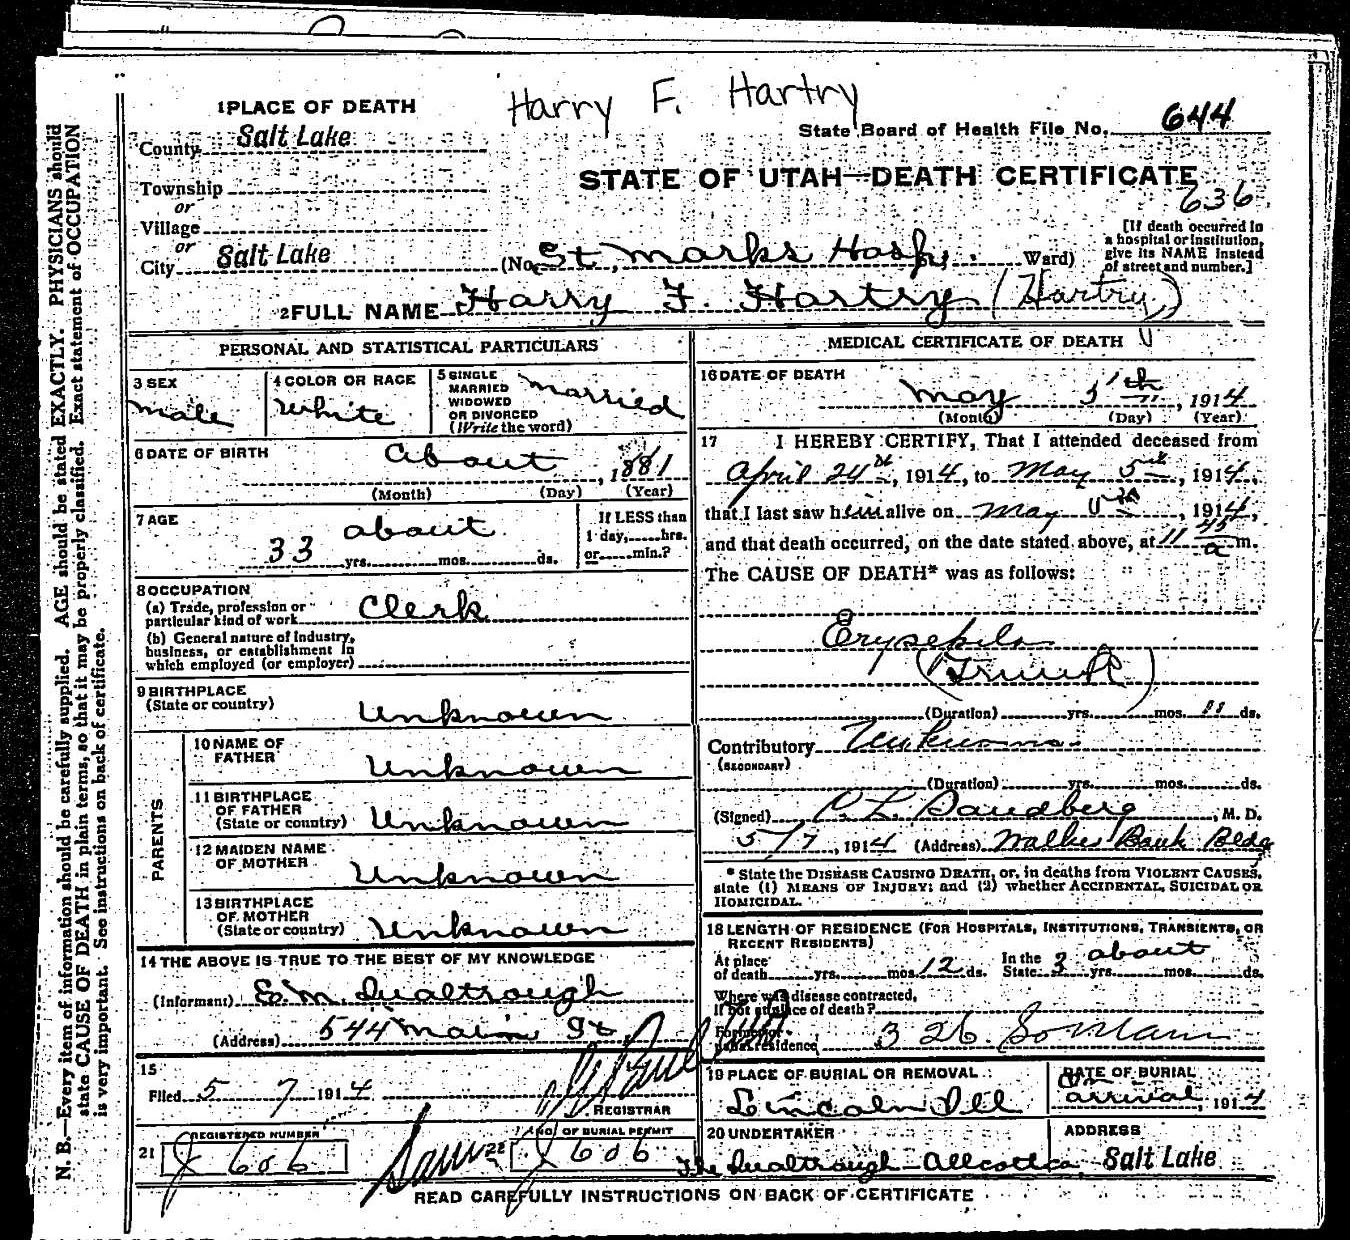 Harry F. Hartry
State Board of Health File No. 644
STATE OF UTAH—DEATH CERTIFICATE
636
1 PLACE OF DEATH
County Salt Lake
Township
or
Village
or
City Salt Lake
(No. St. Marks Hosp. Ward)
[If death occurred in
a hospital or institution,
give its NAME instead
of street and number.]
2 FULL NAME Harry F. Hartry (Hartry)
PERSONAL AND STATISTICAL PARTICULARS
3 SEX
male
4 COLOR OR RACE
White
5 SINGLE
MARRIED
WIDOWED
OR DIVORCED
(Write the word)
married
6 DATE OF BIRTH
About, 1881
(Month) (Day) (Year)
7 AGE
about
33 yrs. mos. ds.
If LESS than
1 day, hrs.
or min.?
8 OCCUPATION
(a) Trade, profession or
particular kind of work Clerk
(b) General nature of industry,
business, or establishment in
which employed (or employer)
9 BIRTHPLACE
(State or country)
Unknown
PARENTS
10 NAME OF
FATHER
Unknown
11 BIRTHPLACE
OF FATHER
(State or country) Unknown
12 MAIDEN NAME
OF MOTHER
Unknown
13 BIRTHPLACE
OF MOTHER
(State or country) Unknown
14 THE ABOVE IS TRUE TO THE BEST OF MY KNOWLEDGE
(Informant) E. M. Qualtrough
(Address) 544 Main St
15
Filed 5 7 1914
REGISTRAR
REGISTERED NUMBER
21 J 606
Same
22 NO. OF BURIAL PERMIT
J 606
MEDICAL CERTIFICATE OF DEATH
16 DATE OF DEATH
May 5th, 1914
(Month) (Day) (Year)
17 I HEREBY CERTIFY, That I attended deceased from
April 24th, 1914, to May 5th, 1914,
that I last saw him alive on May 5th, 1914,
and that death occurred, on the date stated above, at 11 45 a m.
The CAUSE OF DEATH* was as follows:
Erysepilo
(Duration) yrs. mos. 11 ds.
Contributory Unknown
(SECONDARY)
(Duration) yrs. mos. ds.
(Signed) C. L. Sandberg, M. D.
5/7, 1914 (Address) Walker Bank Bldg
* State the DISEASE CAUSING DEATH, or, in deaths from VIOLENT CAUSES,
state (1) MEANS OF INJURY; and (2) whether ACCIDENTAL, SUICIDAL OR
HOMICIDAL.
18 LENGTH OF RESIDENCE (FOR HOSPITALS, INSTITUTIONS, TRANSIENTS, OR
RECENT RESIDENTS)
At place
of death yrs. mos. 12 ds.
In the
State 3 yrs. about mos. ds.
Where was disease contracted,
if not at place of death?
Former or
usual residence 326 So Main
19 PLACE OF BURIAL OR REMOVAL
Lincoln Ill
DATE OF BURIAL
On arrival, 1914
20 UNDERTAKER
The Qualtrough-Allcott Co
ADDRESS
Salt Lake
READ CAREFULLY INSTRUCTIONS ON BACK OF CERTIFICATE
N. B.—Every item of information should be carefully supplied. AGE should be stated EXACTLY. PHYSICIANS should
state CAUSE OF DEATH in plain terms, so that it may be properly classified. Exact statement of OCCUPATION
is very important. See instructions on back of certificate.